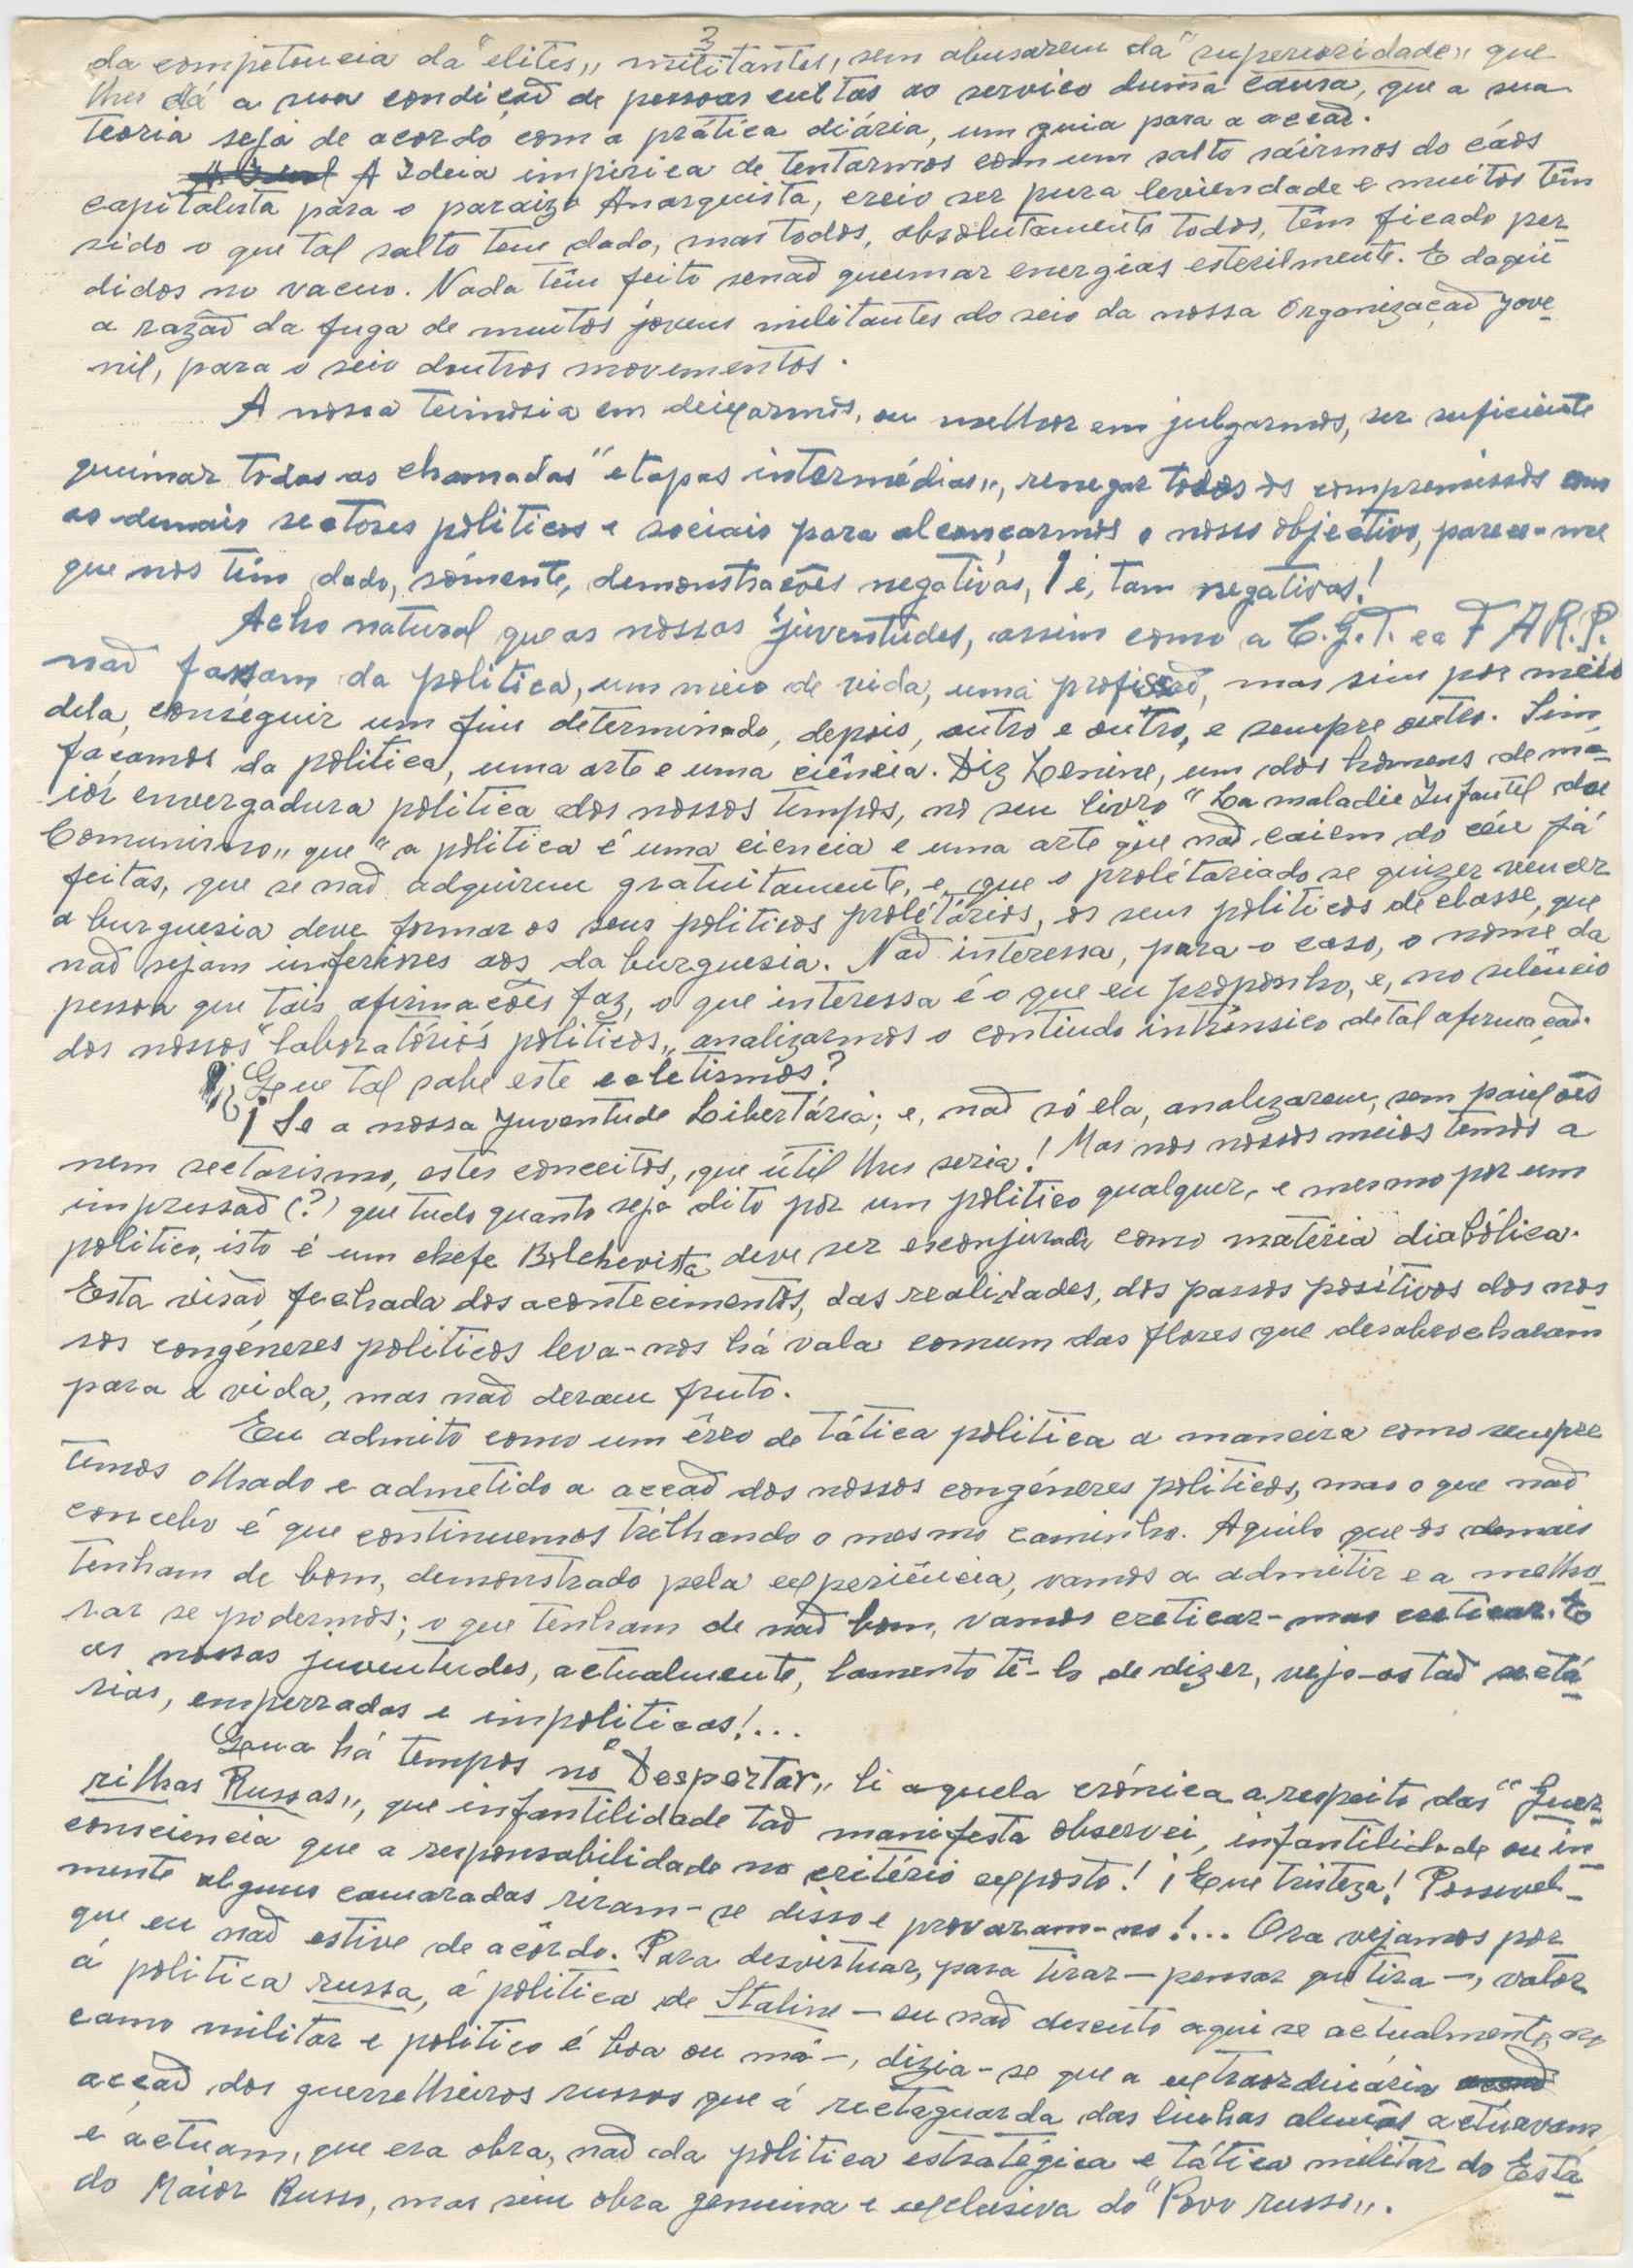 3
da competencia da "elites,, militantes, sem abusarem da "superioridade,, que
lhes dá a sua condição de pessoas cultas ao serviço duma causa, que a sua
teoria seja de acordo com a prática diária, um guia para a acção.
A Ideia impirica de tentarmos com um salto sáirmos do cáos
capitalista para o paraizo Anarquista, creio ser pura leviendade e muitos têm
sido o que tal salto tem dado, mas todos, absolutamente todos, têm ficado per-
didos no vacuo. Nada têm feito senaõ queimar energias esterilmente. E daqui
a razaõ da fuga de muitos jovens militantes do seio da nossa Organizaçaõ Jove-
nil, para o seio doutros movementos.
A nossa teimosia em deixarmos, ou melhor em julgarmos, ser suficiente
queimar todas as chamadas "etapas intermédias,, renegar todos os compremissos com
os demais sectores politicos e sociais para alcançarmos o nosso objectivo, parece-me
que nos têm dado, sómente, demonstrações negativas, ¡ e, tam negativas!
Acho natural que as nossas juventudes, assim como a C.G.T. e a F A R.P.
naõ façam da politica, um meio de vida, uma profissaõ, mas sim por meio
dela, conseguir um fim determinado, depois, outro e outro, e sempre outro. Sim,
façamos da politica, uma arte e uma ciência. Diz Lenine, um dos homens de ma-
iór envergadura politica dos nossos tempos, no seu livro "La maladie Infantil doe
Comunismo,, que "a politica é uma ciencia e uma arte que naõ caiem do céu já
feitas, que se naõ adquirem gratuitamente, e que o prolétariado se quizer vencer
a burguesia deve formar os seus politicos prolétários, os seus politicos de classe, que
naõ sejam inferiores aos da burguesia. Naõ interessa, para o caso, o nome da
pessoa que tais afirmacões faz, o que interessa é o que eu proponho, e, no silêncio
dos nossos "laboratóriós politicos,, analizarmos o contiudo intrínsico de tal afirmaçaõ.
¡Que tal sabe este ecletismos?
¡ Se a nossa Juventude Libertária; e, naõ só ela, analizarem, sem paixões
nem sectarismo, estes conceitos, que útil lhes seria! Mas nos nossos meios temos a
impressaõ (?) que tudo quanto seja dito por um politico qualquer, e mesmo por um
politico, isto é um chefe Bolchevista deve ser esconjurado como matéria diabólica.
Esta visaõ fechada dos acontecimentos, das realidades, dos passos positivos dos nos-
sos congéneres politicos leva-nos há vala comum das flores que desabrocharam
para a vida, mas naõ deram fruto.
Eu admito como um êrro de tática politica a maneira como sempre
temos olhado e admetido a acçaõ dos nossos congéneres politicos, mas o que naõ
concebo é que continuemos trilhando o mesmo caminho. Aquilo que os demais
tenham de bom, demonstrado pela experiência, vamos a admitir e a melho-
rar se podermos; o que tenham de naõ bom, vamos creticar-mas creticar. E
as nossas juventudes, actualmente, lamento tê-lo de dizer, vejo-as taõ sectá-
rias, emperradas e impoliticas!...
Qeua há tempos no "Despertar,, li aquela crónica a respeito das "Guer-
rilhas Russas,, que infantilidade taõ manifesta observei, infantilidade ou in-
consciencia que a responsabilidade no critério exposto! ¡ Que tristeza! Possivel-
mente alguns camaradas riram-se disso e provaram-no!... Ora vejamos por
que eu naõ estive de acôrdo. Para desvirtuar, para tirar — pensar que tira —, valor
á politica russa, á politica de Staline — eu naõ descuto aqui se actualmente,
camo militar e politico é boa ou má —, dizia-se que a extraordinária
acçaõ dos guerrelheiros russos que á rectaguarda das linhas alemãs actuavam
e actuam, que era obra, naõ da politica estratégica e tática militar do Está-
do Maior Russo, mas sim obra genuina e exclusiva do "Povo russo,,.